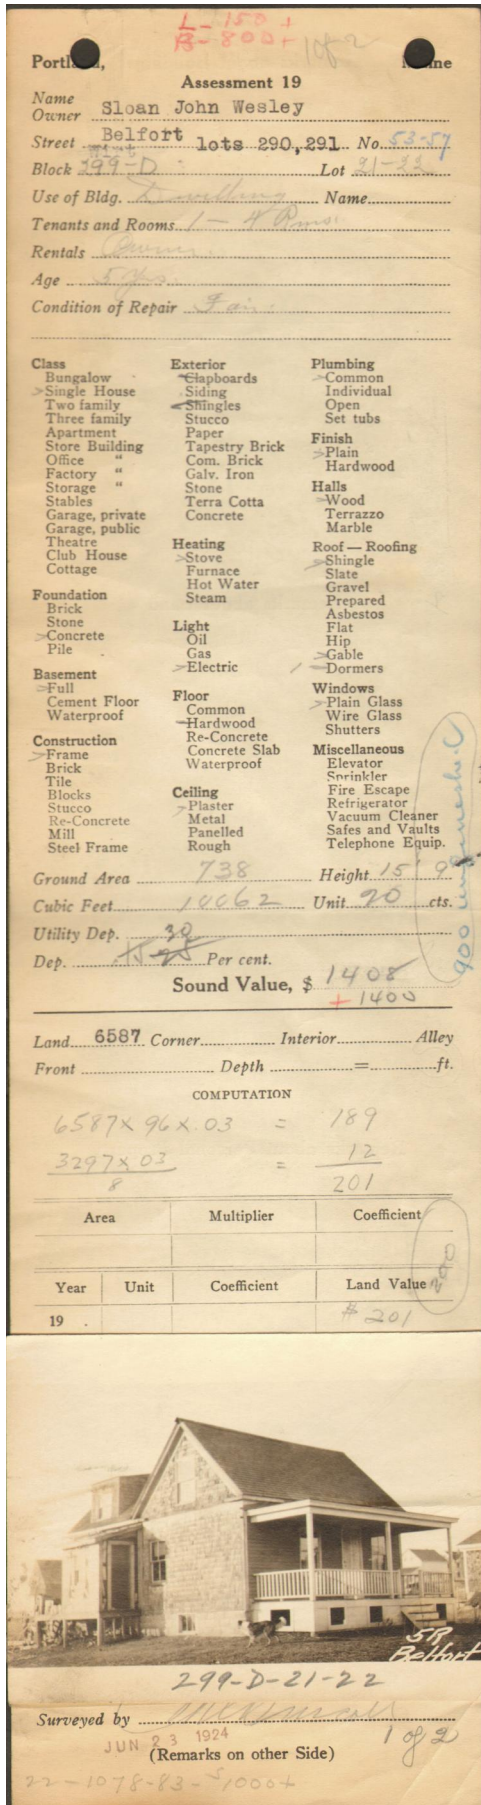 L - 150 +
B - 800 + 1 of 2
Portland, Maine
Assessment 19
Name
Owner Sloan John Wesley
Street Belfort lots 290,291. No. 53-57
Block 299-D Lot 21-22
Use of Bldg. Dwelling Name
Tenants and Rooms 1 - 4 Rms.
Rentals Owner
Age 5 yrs.
Condition of Repair Fair
Class
Bungalow
Single House
Two family
Three family
Apartment
Store Building
Office "
Factory "
Storage "
Stables
Garage, private
Garage, public
Theatre
Club House
Cottage
Foundation
Brick
Stone
Concrete
Pile
Basement
Full
Cement Floor
Waterproof
Construction
Frame
Brick
Tile
Blocks
Stucco
Re-Concrete
Mill
Steel Frame
Exterior
Clapboards
Siding
Shingles
Stucco
Paper
Tapestry Brick
Com. Brick
Galv. Iron
Stone
Terra Cotta
Concrete
Heating
Stove
Furnace
Hot Water
Steam
Light
Oil
Gas
Electric
Floor
Common
Hardwood
Re-Concrete
Concrete Slab
Waterproof
Ceiling
Plaster
Metal
Panelled
Rough
Plumbing
Common
Individual
Open
Set tubs
Finish
Plain
Hardwood
Halls
Wood
Terrazzo
Marble
Roof — Roofing
Shingle
Slate
Gravel
Prepared
Asbestos
Flat
Hip
Gable
1 Dormers
Windows
Plain Glass
Wire Glass
Shutters
Miscellaneous
Elevator
Sprinkler
Fire Escape
Refrigerator
Vacuum Cleaner
Safes and Vaults
Telephone Equip.
900
Ground Area 738 Height 15' 9
Cubic Feet Unit 20 cts.
Utility Dep. 30
Dep. Per cent.
Sound Value, $ 1408
+ 1400
Land 6587 Corner Interior Alley
Front Depth = ft.
COMPUTATION
6587 x 96 x .03 = 189
3297 x 03 = 12
8 201
Area Multiplier Coefficient
200
Year Unit Coefficient Land Value
19 . $ 201
5R
Belfort
299-D-21-22
Surveyed by
JUN 23 1924
1 of 2
(Remarks on other Side)
22 - 1078-83 - $1000+